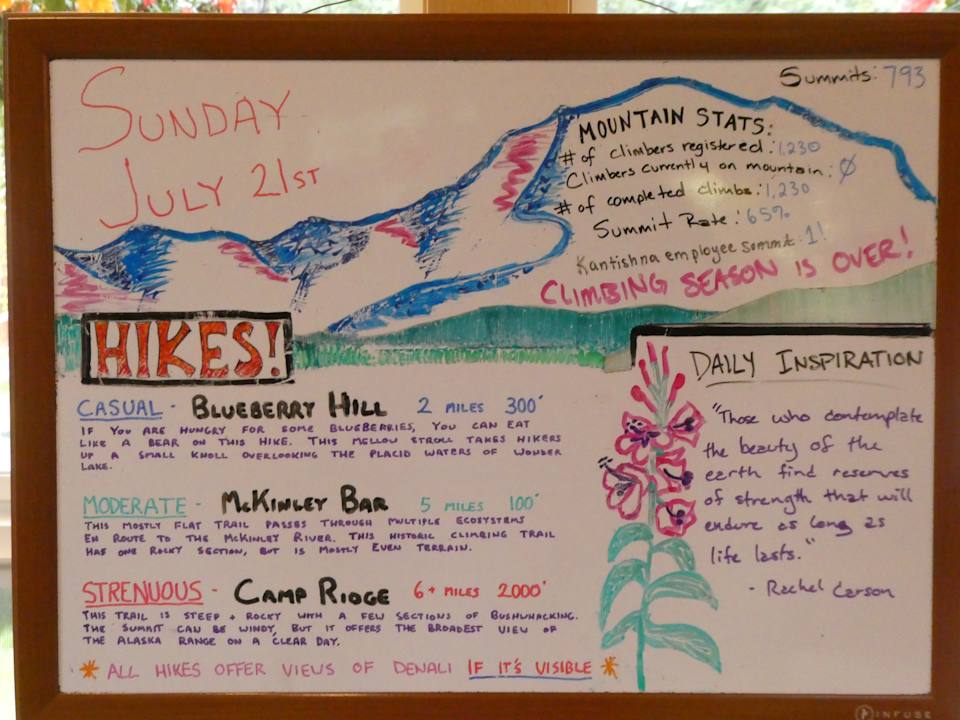 SUNDAY
JULY 21ST
Summits: 793
MOUNTAIN STATS:
# of climbers registered: 1,230
Climbers currently on mountain: Ø
# of completed climbs: 1,230
Summit Rate: 65%
Kantishna employee summit: 1!
CLIMBING SEASON IS OVER!
HIKES!
CASUAL - BLUEBERRY HILL 2 MILES 300'
IF YOU ARE HUNGRY FOR SOME BLUEBERRIES, YOU CAN EAT
LIKE A BEAR ON THIS HIKE. THIS MELLOW STROLL TAKES HIKERS
UP A SMALL KNOLL OVERLOOKING THE PLACID WATERS OF WONDER
LAKE.
MODERATE - MCKINLEY BAR 5 MILES 100'
THIS MOSTLY FLAT TRAIL PASSES THROUGH MULTIPLE ECOSYSTEMS
EN ROUTE TO THE MCKINLEY RIVER. THIS HISTORIC CLIMBING TRAIL
HAS ONE ROCKY SECTION, BUT IS MOSTLY EVEN TERRAIN.
STRENUOUS - CAMP RIDGE 6+ MILES 2000'
THIS TRAIL IS STEEP + ROCKY WITH A FEW SECTIONS OF BUSHWHACKING.
THE SUMMIT CAN BE WINDY, BUT IT OFFERS THE BROADEST VIEW OF
THE ALASKA RANGE ON A CLEAR DAY.
* ALL HIKES OFFER VIEWS OF DENALI IF IT'S VISIBLE *
DAILY INSPIRATION
"Those who contemplate
the beauty of the
earth find reserves
of strength that will
endure as long as
life lasts."
- Rachel Carson
INFUSE